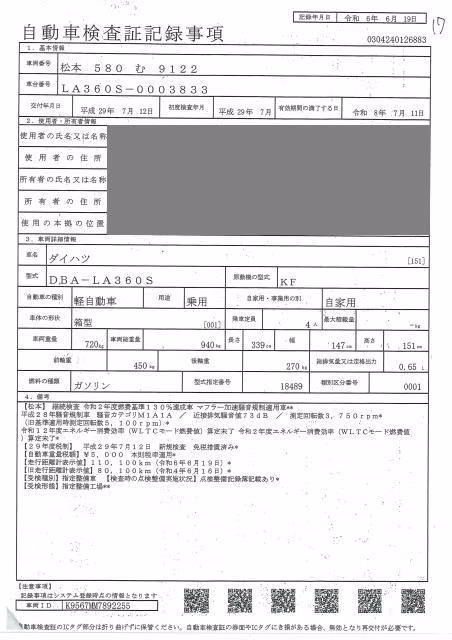 記録年月日 令和 6年 6月 19日
17
自動車検査証記録事項
0304240126883
1. 基本情報
車両番号 松本 580 む 9122
車台番号 LA360S-0003833
交付年月日 平成 29年 7月 12日 初度検査年月 平成 29年 7月 有効期間の満了する日 令和 8年 7月 11日
2. 使用者・所有者情報
使用者の氏名又は名称
使用者の住所
所有者の氏名又は名称
所有者の住所
使用の本拠の位置
3. 車両詳細情報
車名 ダイハツ [151]
型式 DBA-LA360S 原動機の型式 KF
自動車の種別 軽自動車 用途 乗用 自家用・事業用の別 自家用
車体の形状 箱型 [001] 乗車定員 4人 最大積載量 -kg
車両重量 720kg 車両総重量 940kg 長さ 339cm 幅 147cm 高さ 151cm
前軸重 450kg 後軸重 270kg 総排気量又は定格出力 0.65 L
燃料の種類 ガソリン 型式指定番号 18489 類別区分番号 0001
4. 備考
【松本】 継続検査 令和2年度燃費基準130%達成車 マフラー加速騒音規制適用車**
平成28年騒音規制車 騒音カテゴリM1A1A / 近接排気騒音値73dB / 測定回転数3,750rpm*
(旧基準適用時測定回転数5,100rpm)*
令和12年度エネルギー消費効率(WLTCモード燃費値)算定未了 令和2年度エネルギー消費効率(WLTCモード燃費値
)算定未了*
【29年度税制】 平成29年7月12日 新規検査 免税措置済み*
【自動車重量税額】¥5,000 本則税率適用*
【走行距離計表示値】110,100km(令和6年6月19日)*
【旧走行距離計表示値】80,100km(令和4年6月16日)*
【受検種別】指定整備車 【検査時の点検整備実施状況】点検整備記録簿記載あり*
【受検形態】指定整備工場**
【注意事項】
記録事項はシステム登録時点の情報となります
車両ID K9567MM7892255
自動車検査証のICタグ部分は折り曲げずに保管ください。自動車検査証の券面やICタグに き損がある場合、無効となり再交付が必要です。